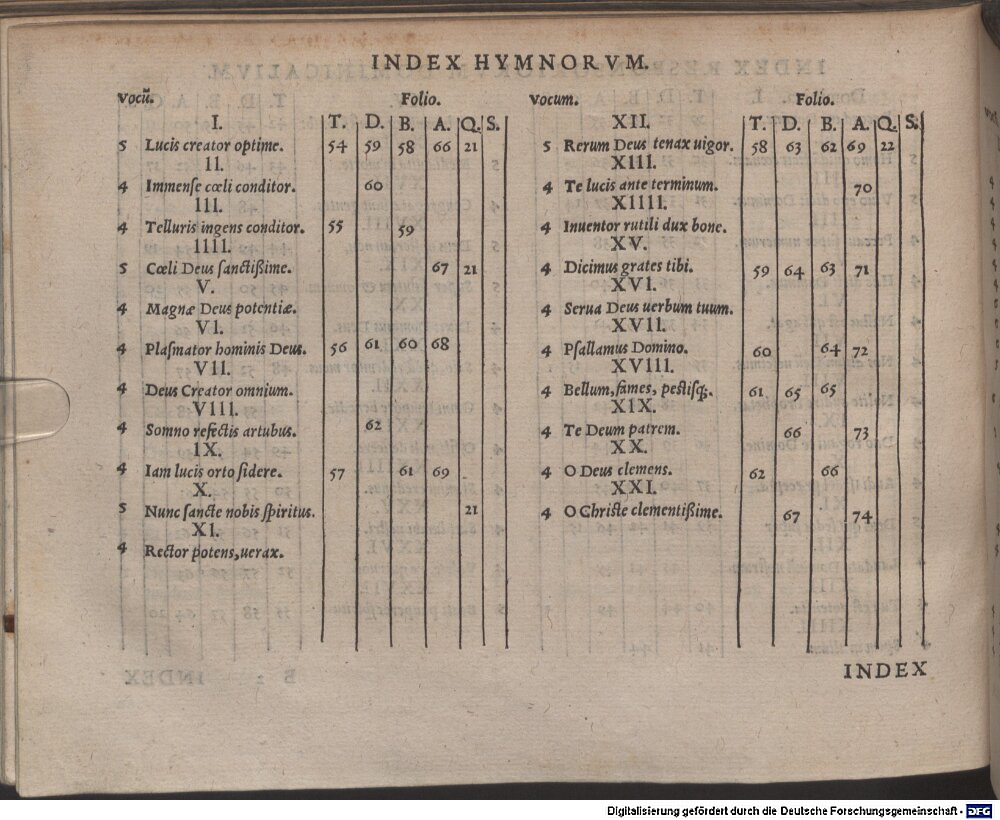 INDEX HYMNORVM.
vocũ. Folio.
I. T. D. B. A. Q. S.
5 Lucis creator optime. 54 59 58 66 21
II.
4 Immenſe cœli conditor. 60
III.
4 Telluris ingens conditor. 55 59
IIII.
5 Cœli Deus ſanctißime. 67 21
V.
4 Magnæ Deus potentiæ.
VI.
4 Plaſmator hominis Deus. 56 61 60 68
VII.
4 Deus Creator omnium.
VIII.
4 Somno refectis artubus. 62
IX.
4 Iam lucis orto ſidere. 57 61 69
X.
5 Nunc ſancte nobis ſpiritus. 21
XI.
4 Rector potens, uerax.
vocum. Folio.
XII. T. D. B. A. Q. S.
5 Rerum Deus tenax uigor. 58 63 62 69 22
XIII.
4 Te lucis ante terminum. 70
XIIII.
4 Inuentor rutili dux bone.
XV.
4 Dicimus grates tibi. 59 64 63 71
XVI.
4 Serua Deus uerbum tuum.
XVII.
4 Pſallamus Domino. 60 64 72
XVIII.
4 Bellum, fames, peſtisq;. 61 65 65
XIX.
4 Te Deum patrem. 66 73
XX.
4 O Deus clemens. 62 66
XXI.
4 O Chriſte clementißime. 67 74
INDEX
Digitalisierung gefördert durch die Deutsche Forschungsgemeinschaft - DFG